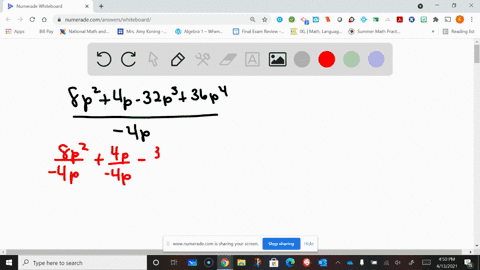 Numerade Whiteboard
numerade.com/answers/whiteboard/
Apps
Bill Pay
National Math and...
Mrs. Amy Koning -...
Algebra 1 – When...
Final Exam Review -...
IXL | Math, Languag...
Summer Math Pract...
Reading list
8p² + 4p - 32p³ + 36p⁴
-4p
8p² + 4p - 3
-4p -4p
www.numerade.com is sharing your screen.
Stop sharing
Hide
Type here to search
4:50 PM
4/13/2021